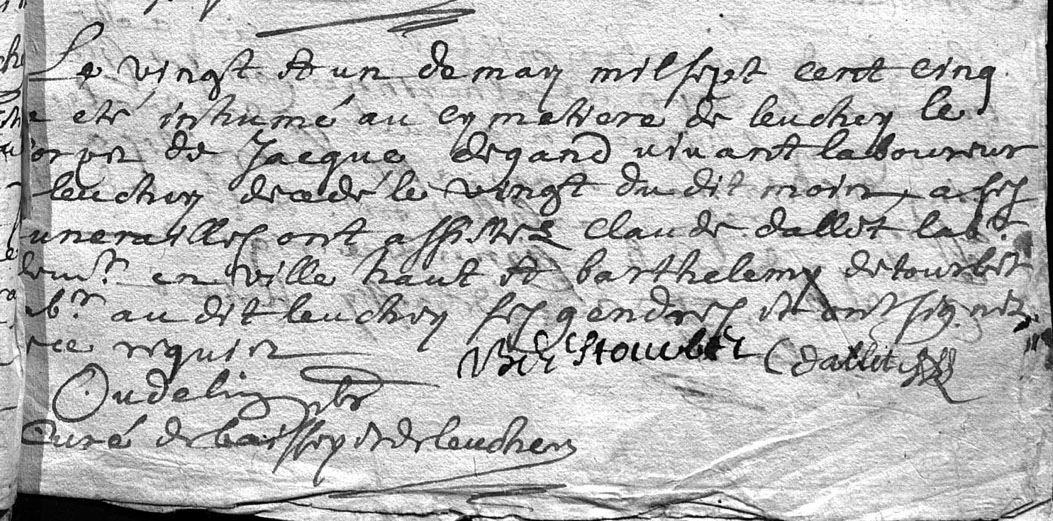 Le vingt et un de may mil sept cent cinq
a eté inhumé au cymetiere de leuchey le
corps de Jacque degand vivant laboureur
leuchey decedé le vingt du dit mois, a ses
funerailles ont assistez claude dallit lab.r
dem.t en ville haut et barthelemy detourbet
lab.r au dit leuchey ses gendres et ont signez
ce requis detourbet C dallit
Oudelin pbr
Curé de baissey et de leuchey